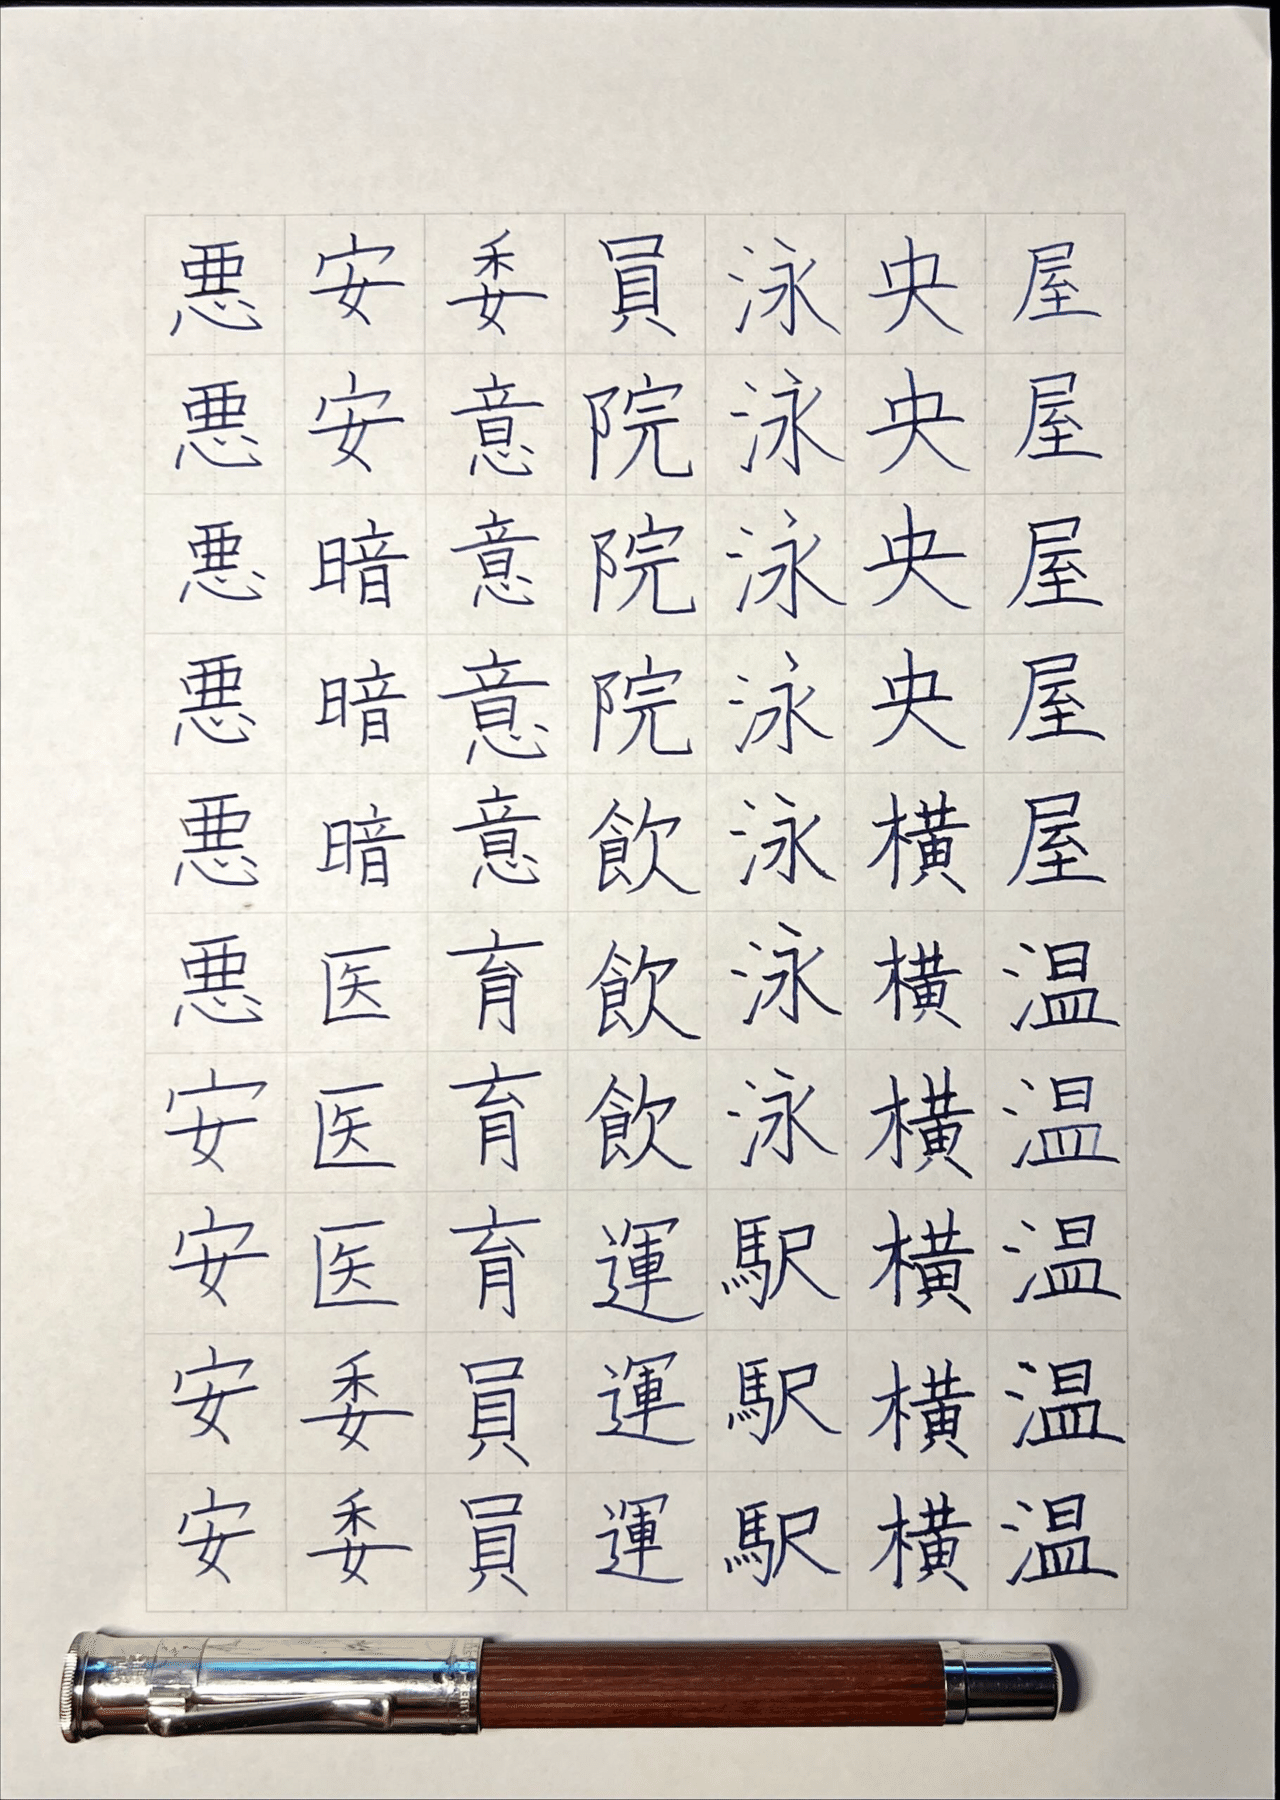 悪悪悪悪悪悪安安安安
安安暗暗暗医医医委委
委意意意意育育育員員
員院院院飲飲飲運運運
泳泳泳泳泳泳泳駅駅駅
央央央央横横横横横横
屋屋屋屋屋温温温温温